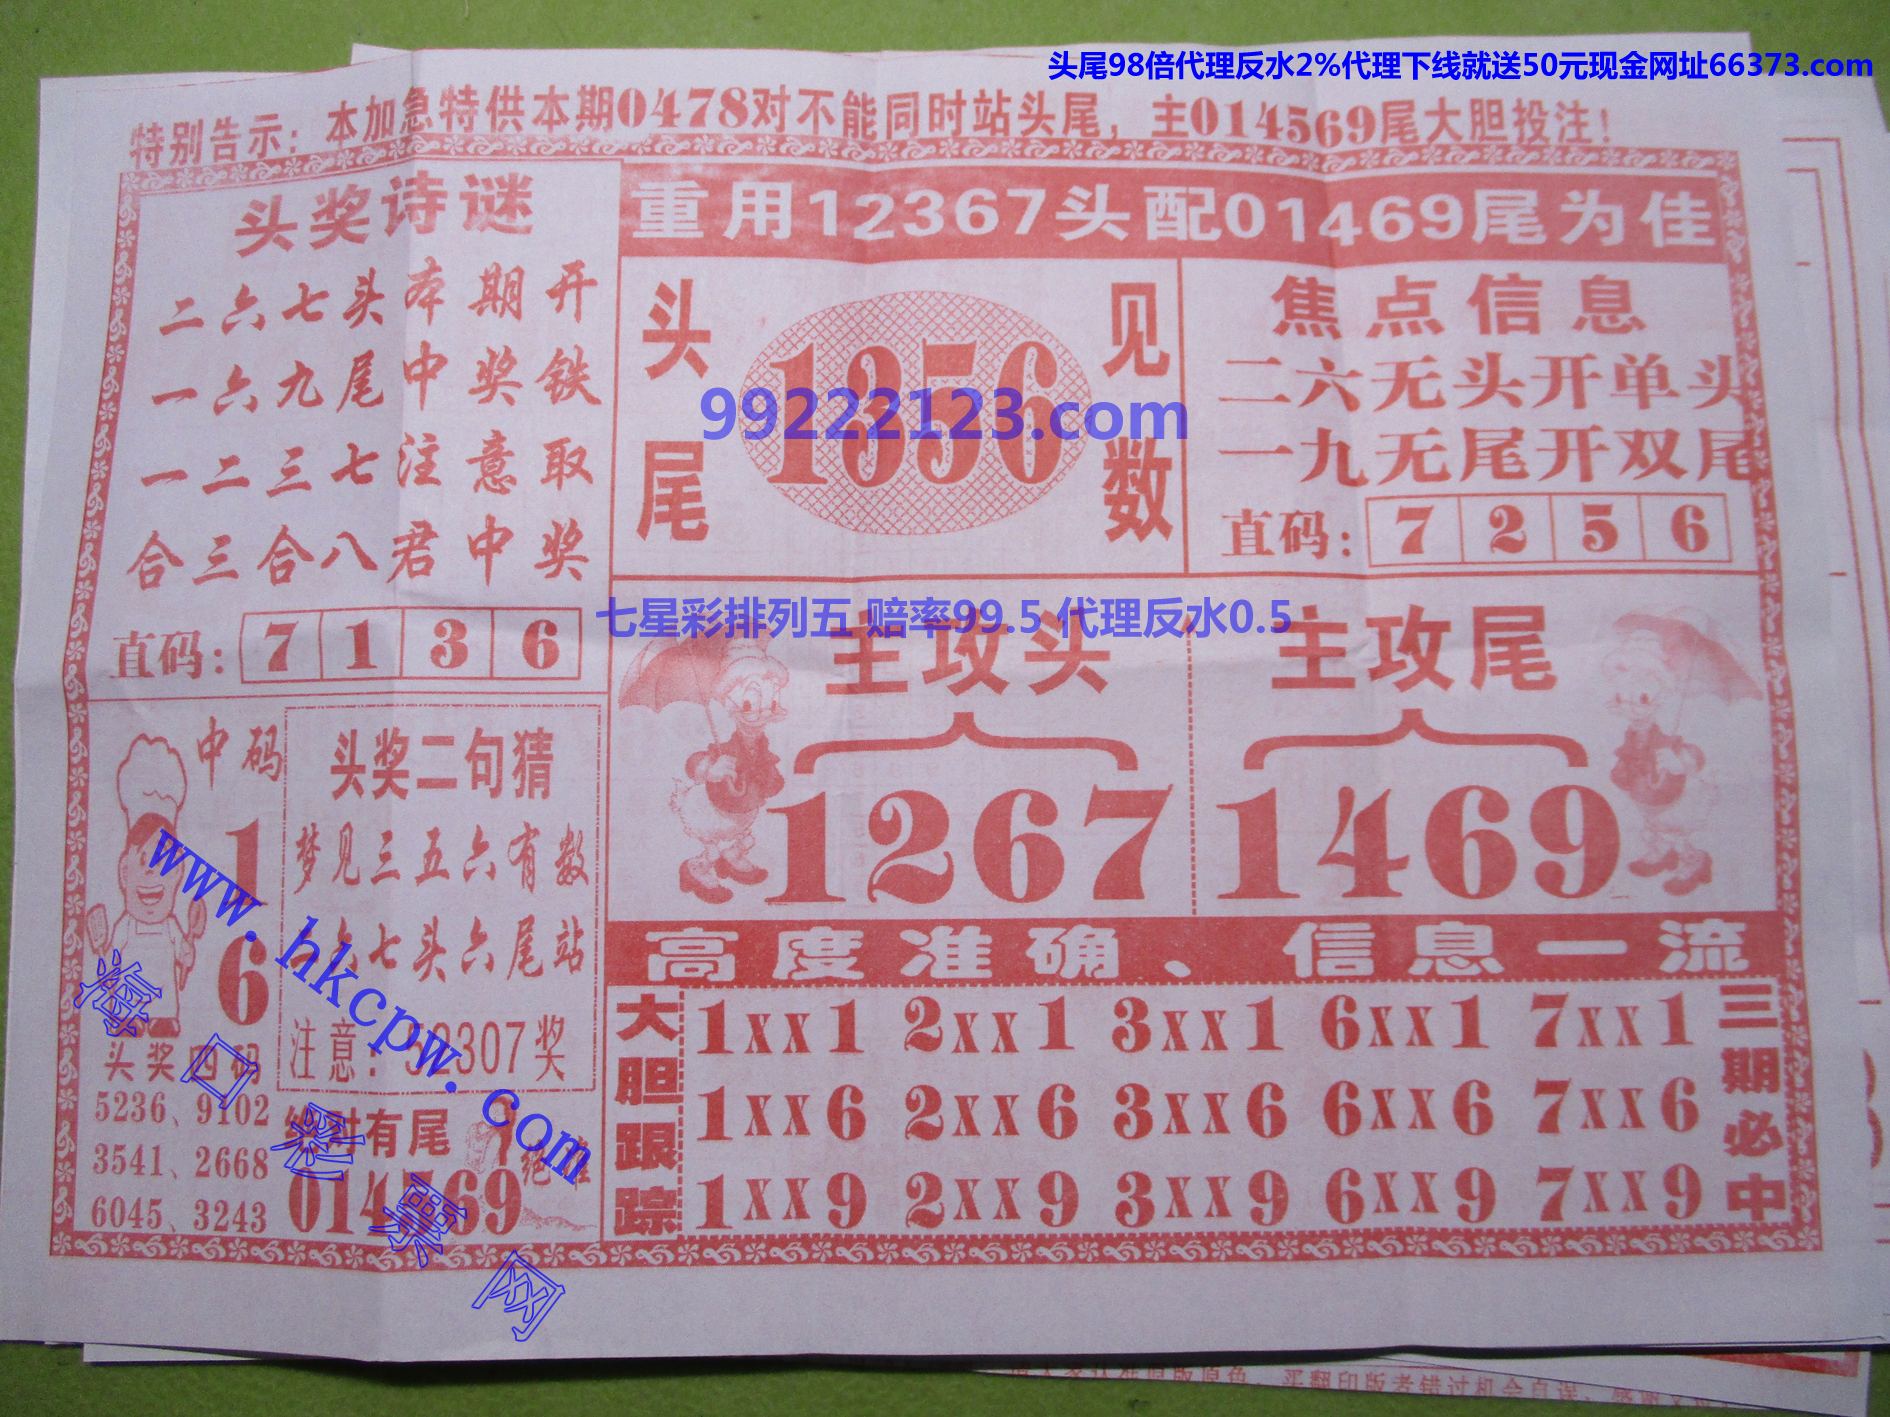 头尾98倍代理反水2%代理下线就送50元现金网址66373.com
特别告示：本加急特供本期0478对不能同时站头尾，主014569尾大胆投注！
头奖诗谜
二六七头本期开
一六九尾中奖铁
一二三七注意取
合三合八君中奖
直码：7136
重用12367头配01469尾为佳
头尾
1356
见数
99222123.com
焦点信息
二六无头开单头
一九无尾开双尾
直码：7256
七星彩排列五 赔率99.5 代理反水0.5
主攻头
1267
主攻尾
1469
中码
1
6
头奖四码
5236、9102
3541、2668
6045、3243
头奖二句猜
梦见三五六有数
六七头六尾站
注意：52307奖
绝对有尾
014569
高度准确、信息一流
大胆跟踪
1xx1 2xx1 3xx1 6xx1 7xx1
1xx6 2xx6 3xx6 6xx6 7xx6
1xx9 2xx9 3xx9 6xx9 7xx9
三期必中
www.hkcpw.com
海口彩票网